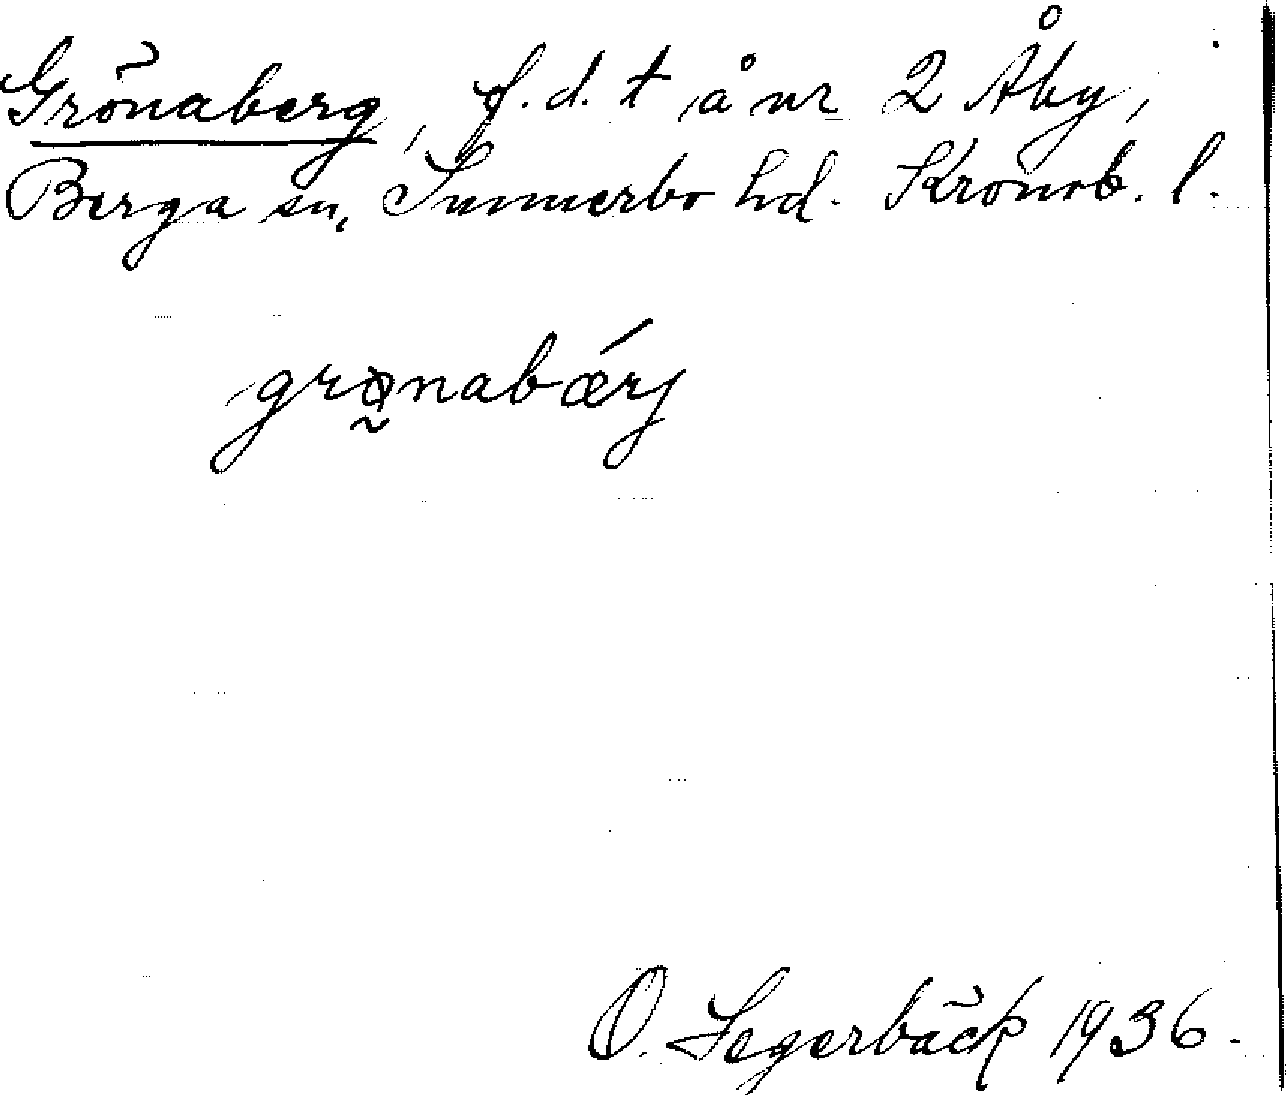 Grönaberg, f.d. t å nr 2 Åby,
Berga sn, Sunnerbo hd. Kronob. l.
grø̰nabǽrj
O. Segerbäck 1936.